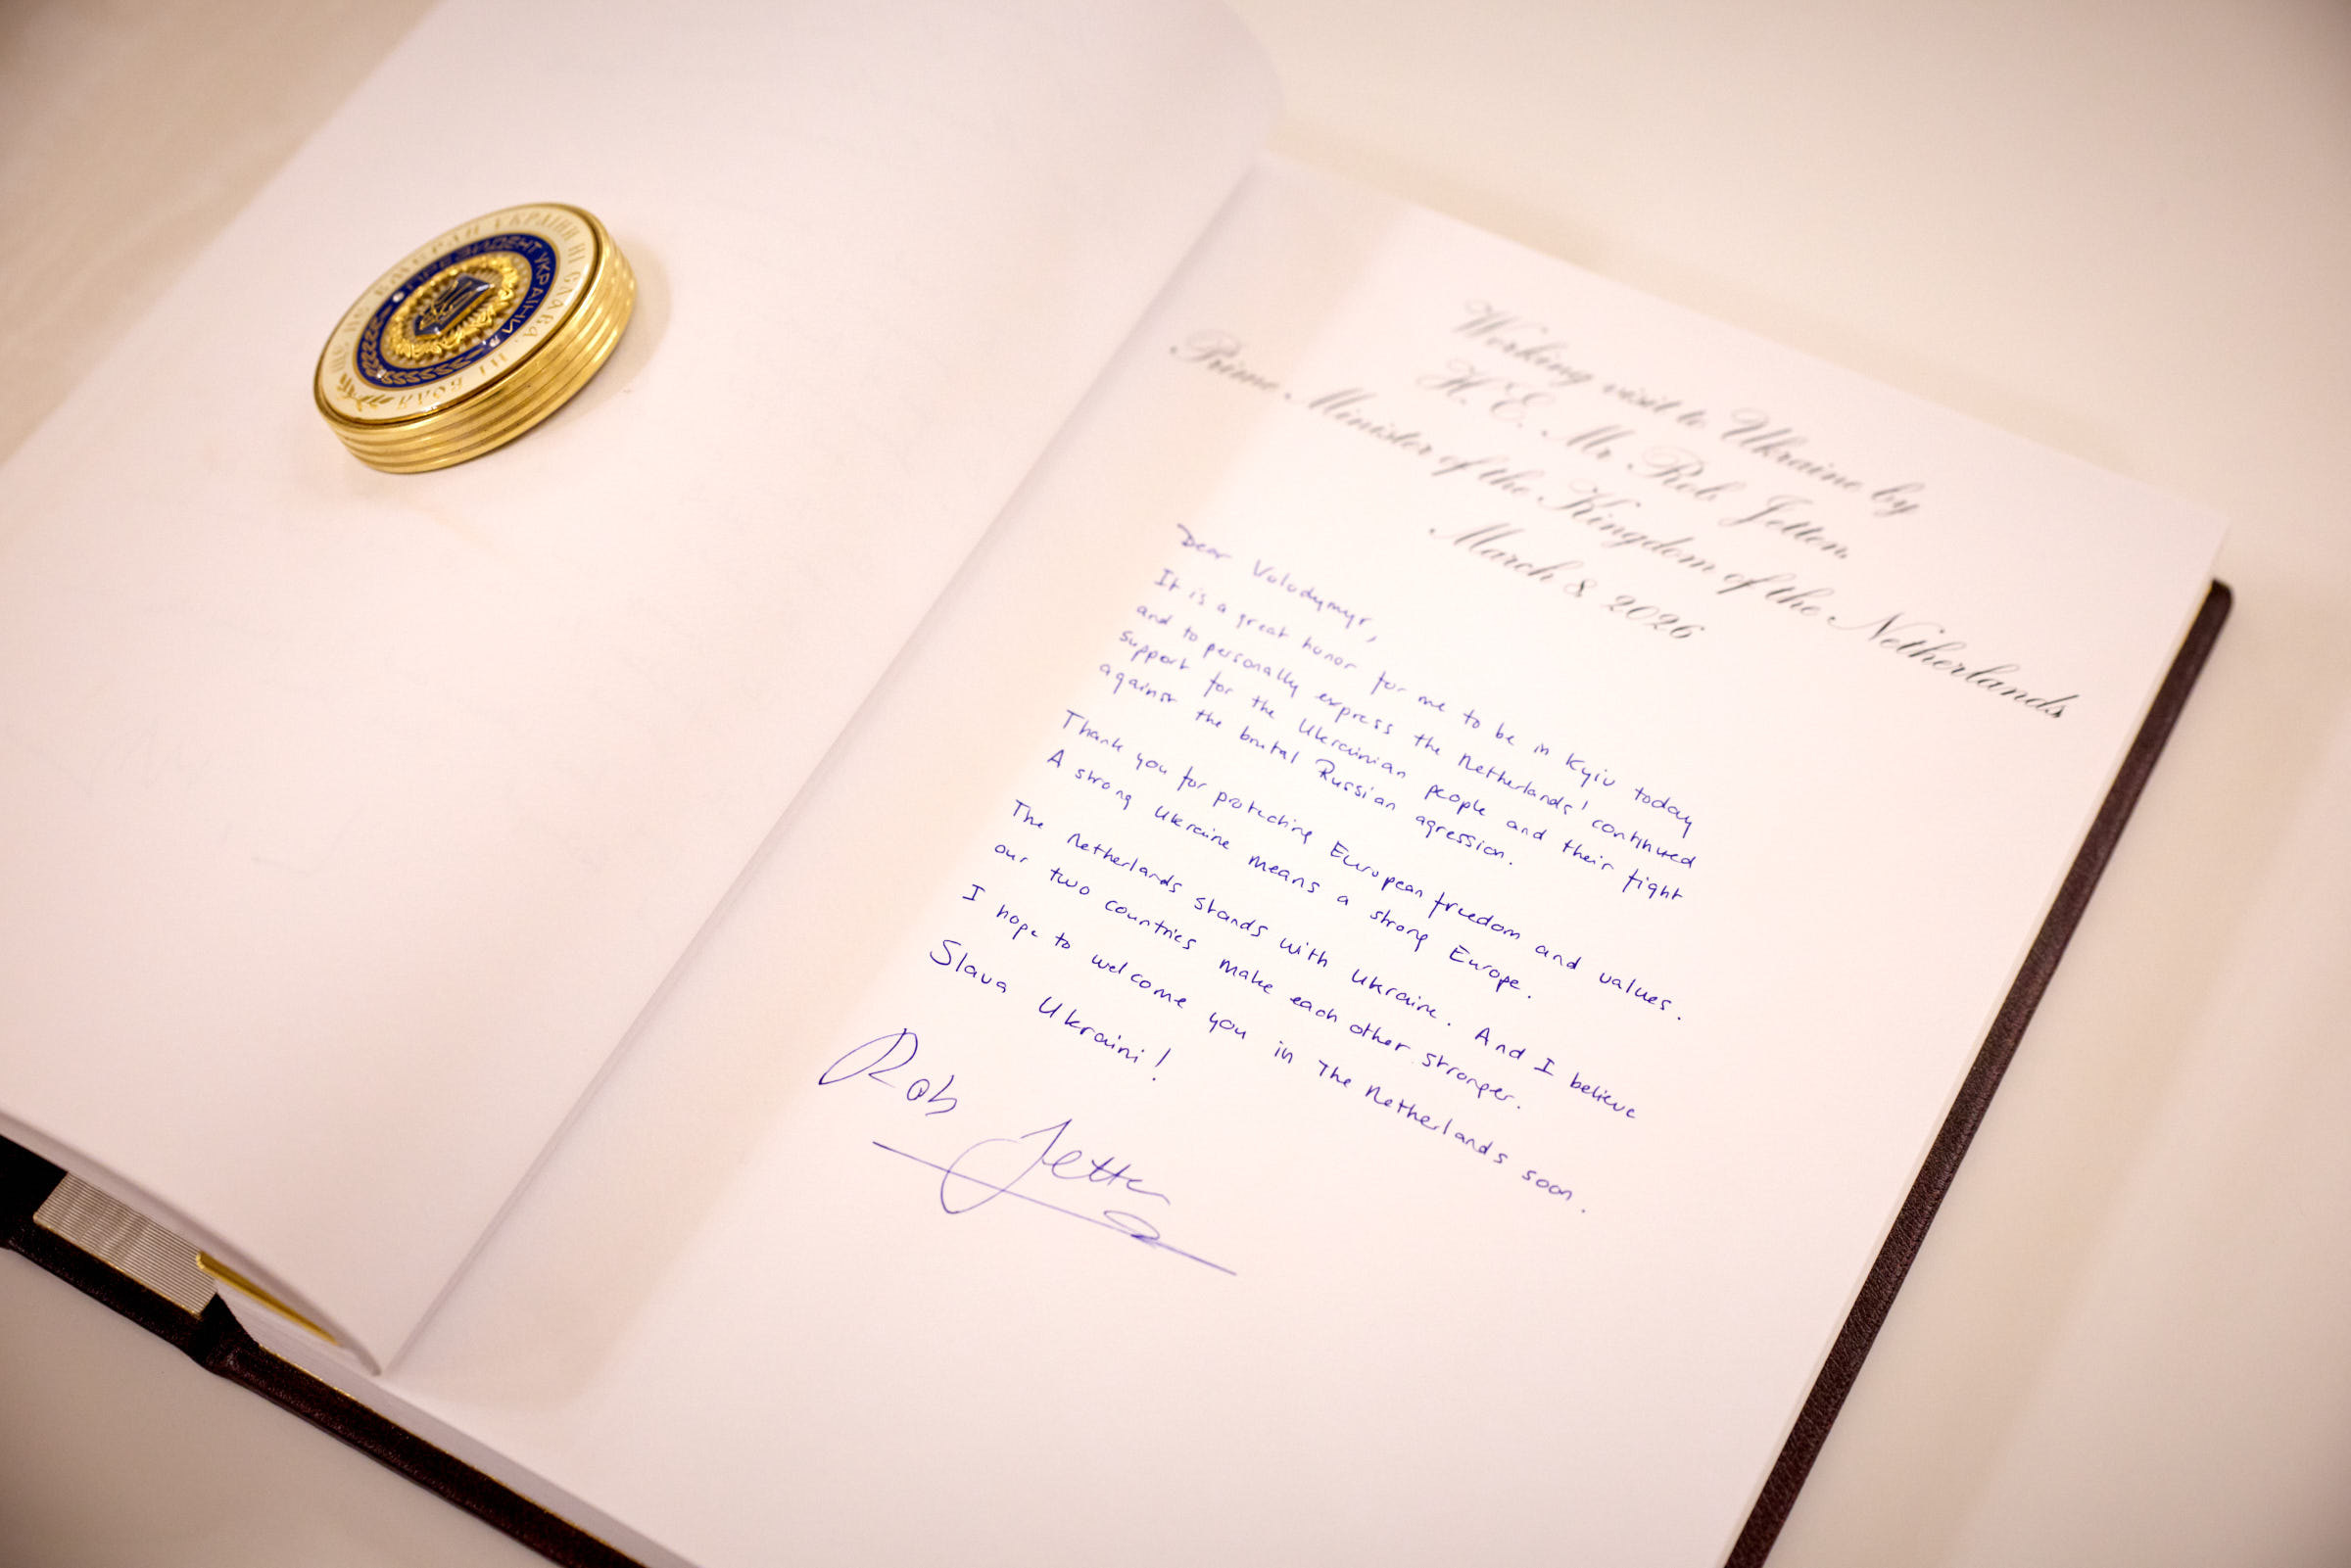 ПРЕЗИДЕНТ УКРАЇНИ
Working visit to Ukraine by
H. E. Mr. Rob Jetten,
Prime Minister of the Kingdom of the Netherlands
March 8 2026
Dear Volodymyr,
It is a great honor for me to be in Kyiv today
and to personally express the Netherlands' continued
support for the Ukrainian people and their fight
against the brutal Russian agression.
Thank you for protecting European freedom and values.
A strong Ukraine means a strong Europe.
The Netherlands stands with Ukraine. And I believe
our two countries make each other stronger.
I hope to welcome you in The Netherlands soon.
Slava Ukraini!
Rob
Jetten